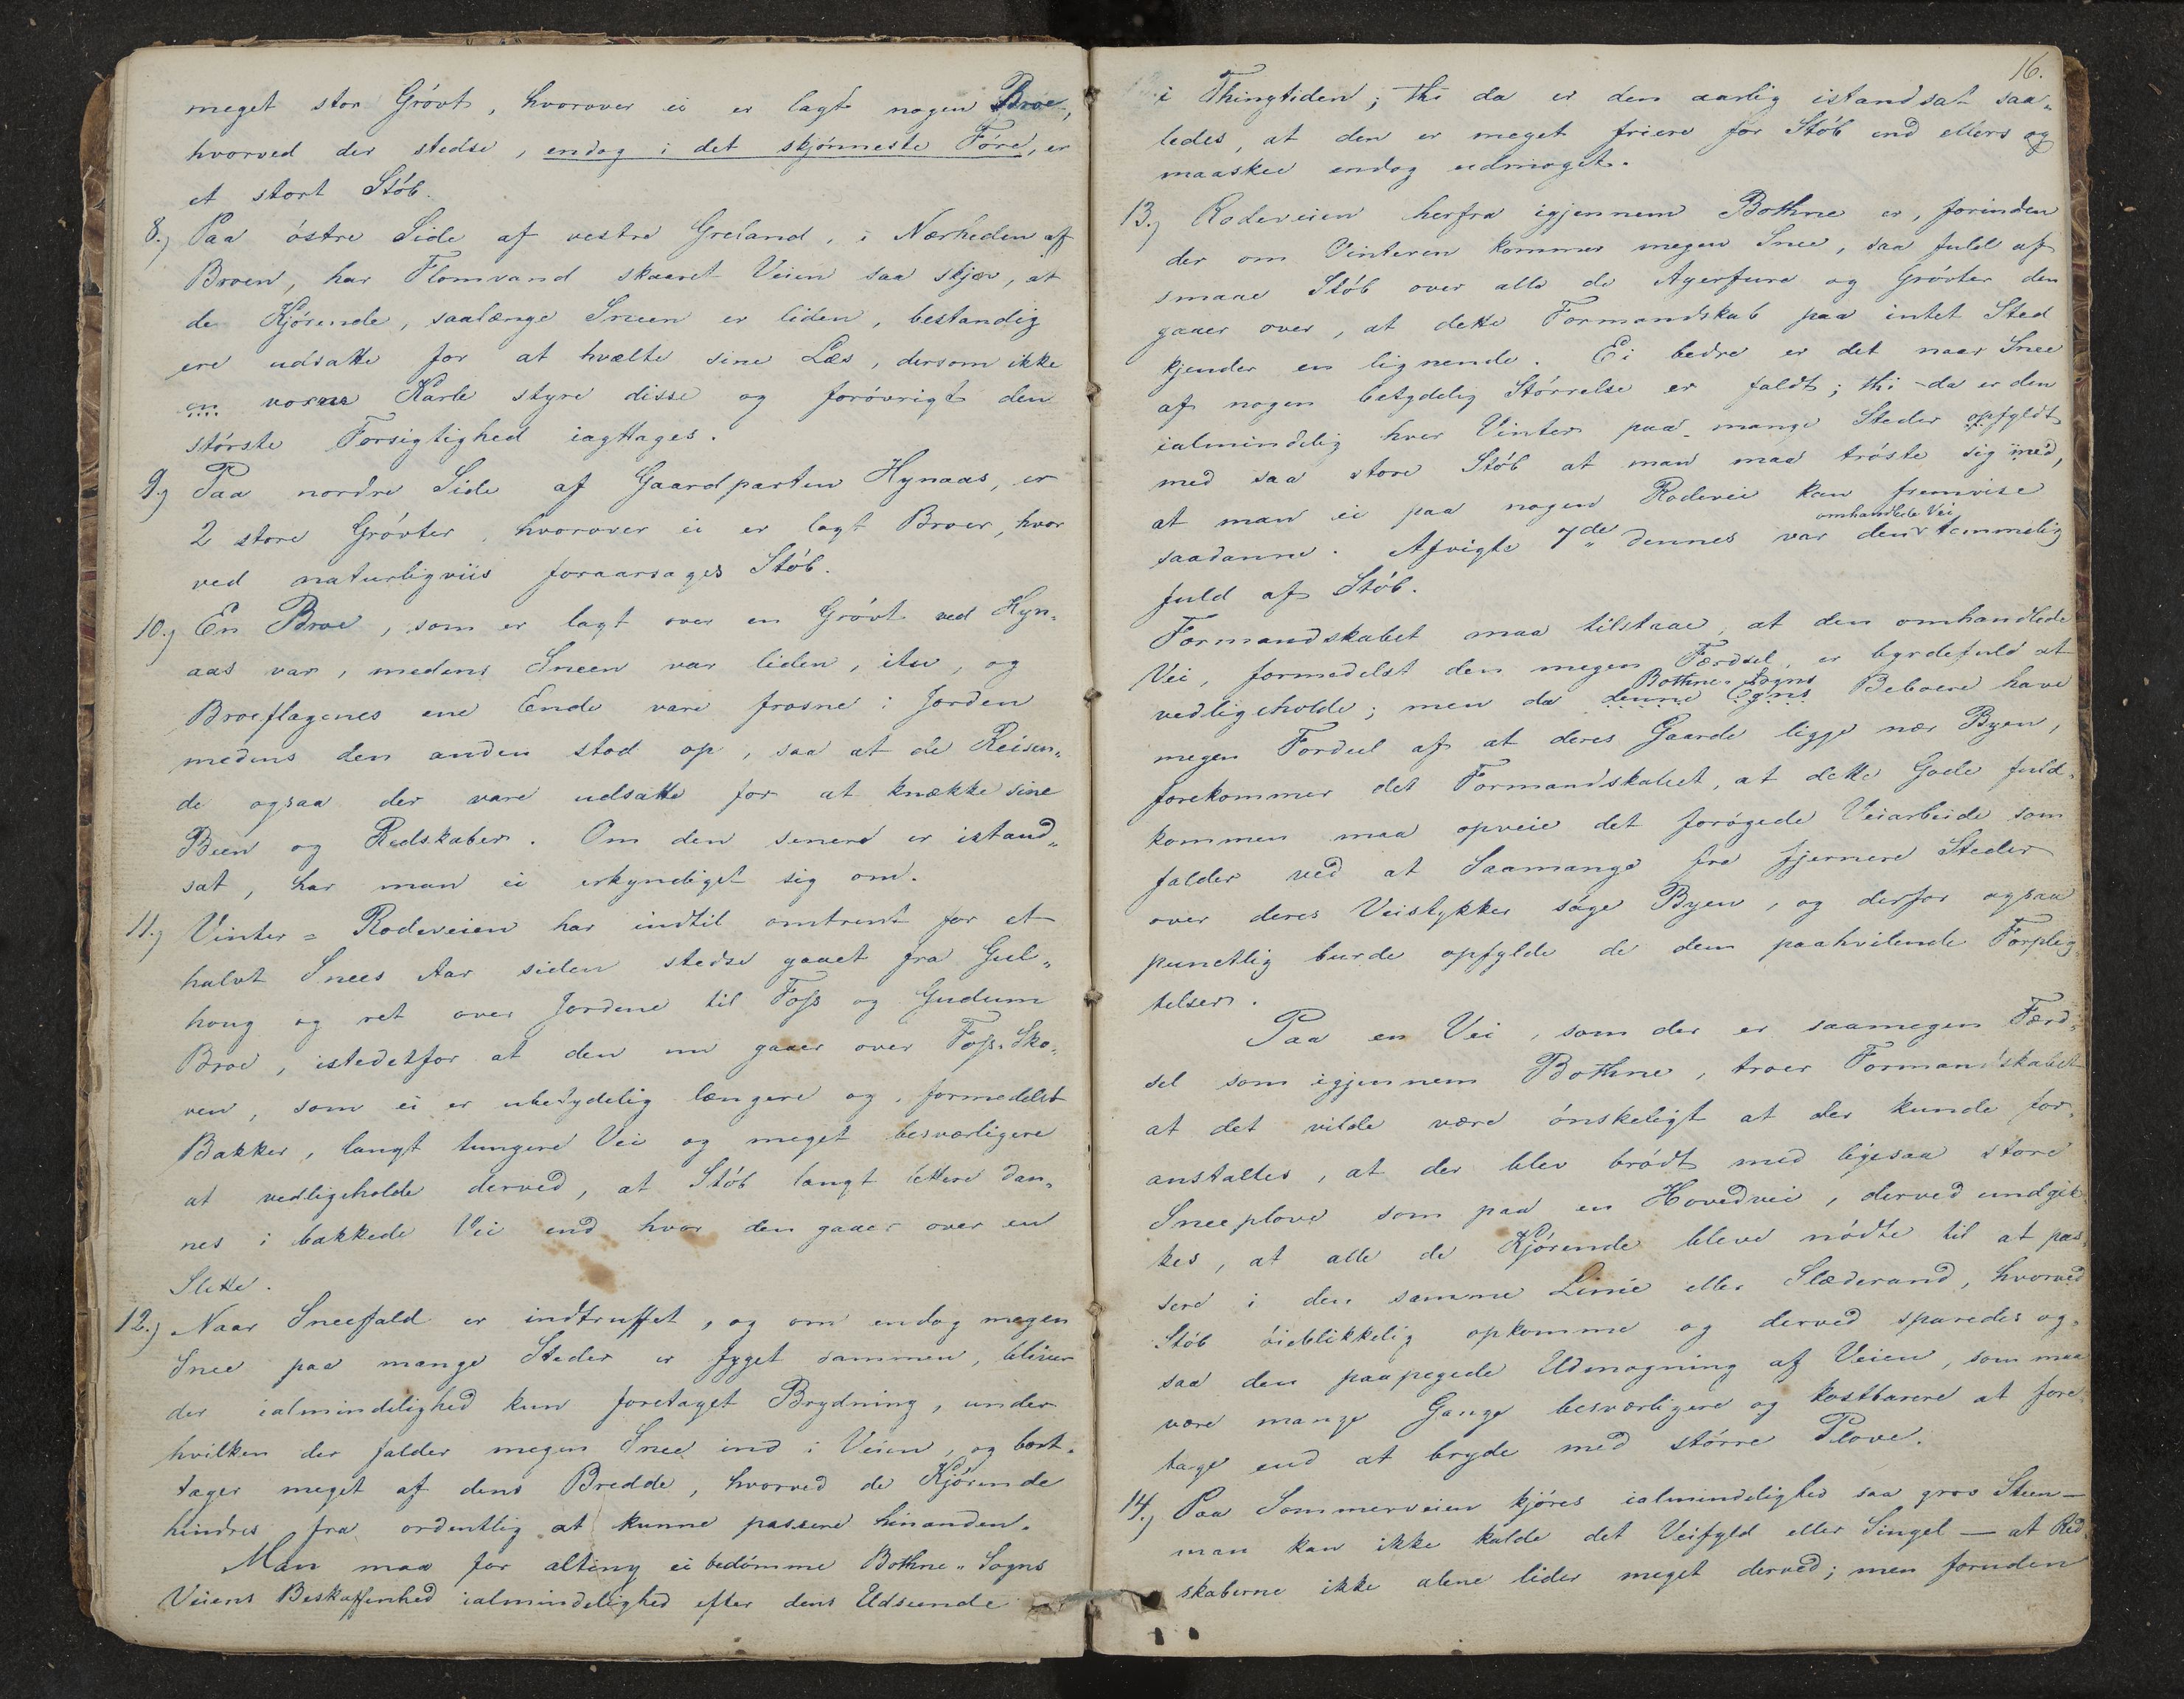 meget stor Grövt, hvorover ei er lagt nogen Broe,
hvorved der stedse, endog i det skjönneste Före, er
et stort Stöb.
8.) Paa östre Side af vestre Greland, i Nærheden af
Broen, har Flomvand skaaret Veien saa skjæv, at
de Kjörende, saalænge Sneen er liden, bestandig
ere udsatte for at hvælte sine Læs, dersom ikke
en voxne Karle styre disse og forövrigt den
störste Forsigtighed iagttages.
9.) Paa nordre Side af Gaardparten Hynaas, er
2 store Grövter, hvorover ei er lagt Broer, hvor
ved naturligviis foraarsages Stöb.
10.) En Broe, som er lagt over en Grövt ved Hyn-
aas var, medens Sneen var liden, itu, og
Broeflagenes ene Ende vare frosne i Jorden
medens den anden stod op, saa at de Reisen-
de ogsaa der vare udsatte for at knække sine
Been og Redskaber. Om den senere er istand-
sat, har man ei erkyndiget sig om.
11.) Vinter-Rodeveien har indtil omtrent for et
halvt Snees Aar siden stedse gaaet fra Gul-
houg og ret over Jordene til Foss og Gudum
Broe, istedetfor at den nu gaaer over Foss-Sko-
ven, som ei er ubetydelig længere og, formedelst
Bakker, langt tungere Vei og meget besværligere
at vedligeholde derved, at Stöb langt lettere dan-
nes i bakkede Vei end hvor den gaaer over en
Slette.
12.) Naar Sneefald er indtruffet, og om endog megen
Snee paa mange Steder er fyget sammen, bliver
der ialmindelighed kun foretaget Brydning, under
hvilken der falder megen Snee ind i Veien, og bort-
tager meget af dens Bredde, hvorved de Kjörende
hindres fra ordentlig at kunne passere hinanden.
Man maa for alting ei bedömme Bothne-Sogns
Veiens Beskaffenhed ialmindelighed efter dens Udseende
16.
i Thingtiden; thi da er den aarlig istandsat saa-
ledes, at den er meget friere for Stöb end ellers og
maaskee endog udmoget.
13.) Rodeveien herfra igjennem Bothne er, forinden
der om Vinteren kommer megen Snee, saa fuld af
smaae Stöb over alle de Agerfure og Grövter den
gaaer over, at dette Formandskab paa intet Sted
kjender en lignende. Ei bedre er det naar Snee
af nogen betydelig Störrelse er faldt; thi da er den
ialmindelig hver Vinter paa mange Steder opfyldt
med saa store Stöb at man maa tröste sig med,
at man ei paa nogen Rodevei kan fremvise
saadanne. Afvigte 7de dennes var den omhandlede Vei temmelig
fuld af Stöb.
Formandskabet maa tilstaae, at den omhandlede
Vei, formedelst den megen Færdsel, er byrdefuld at
vedligeholde; men da denne Egns Bothne-Sogns Beboere have
megen Fordeel af at deres Gaarde ligge nær Byen,
forekommer det Formandskabet, at dette Gode fuld-
kommen maa opveie det forögede Veiarbeide som
falder ved at Saamange fra fjernere Steder
over deres Veistykker söge Byen, og derfor ogsaa
punctlig burde opfylde de dem paahvilende Forplig-
telser.
Paa en Vei, som der er saamegen Færd-
sel som igjennem Bothne, troer Formandskabet
at det vilde være önskeligt at der kunde for-
anstaltes, at der blev brödt med ligesaa store
Sneeplove som paa en Hovedvei, derved undgik-
kes, at alle de Kjörende bleve nödte til at pas-
sere i den samme Linie eller Slæderand, hvorved
Stöb öieblikkelig opkomme og derved sparedes og-
saa den paapegede Udmogning af Veien, som maa
være mange Gange besværligere og kostbarere at fore-
tage end at bryde med större Plove.
14.) Paa Sommerveien kjöres ialmindelighed saa grov Steen—
man kan ikke kalde det Veifyld eller Singel — at Red-
skaberne ikke alene lider meget derved; men foruden